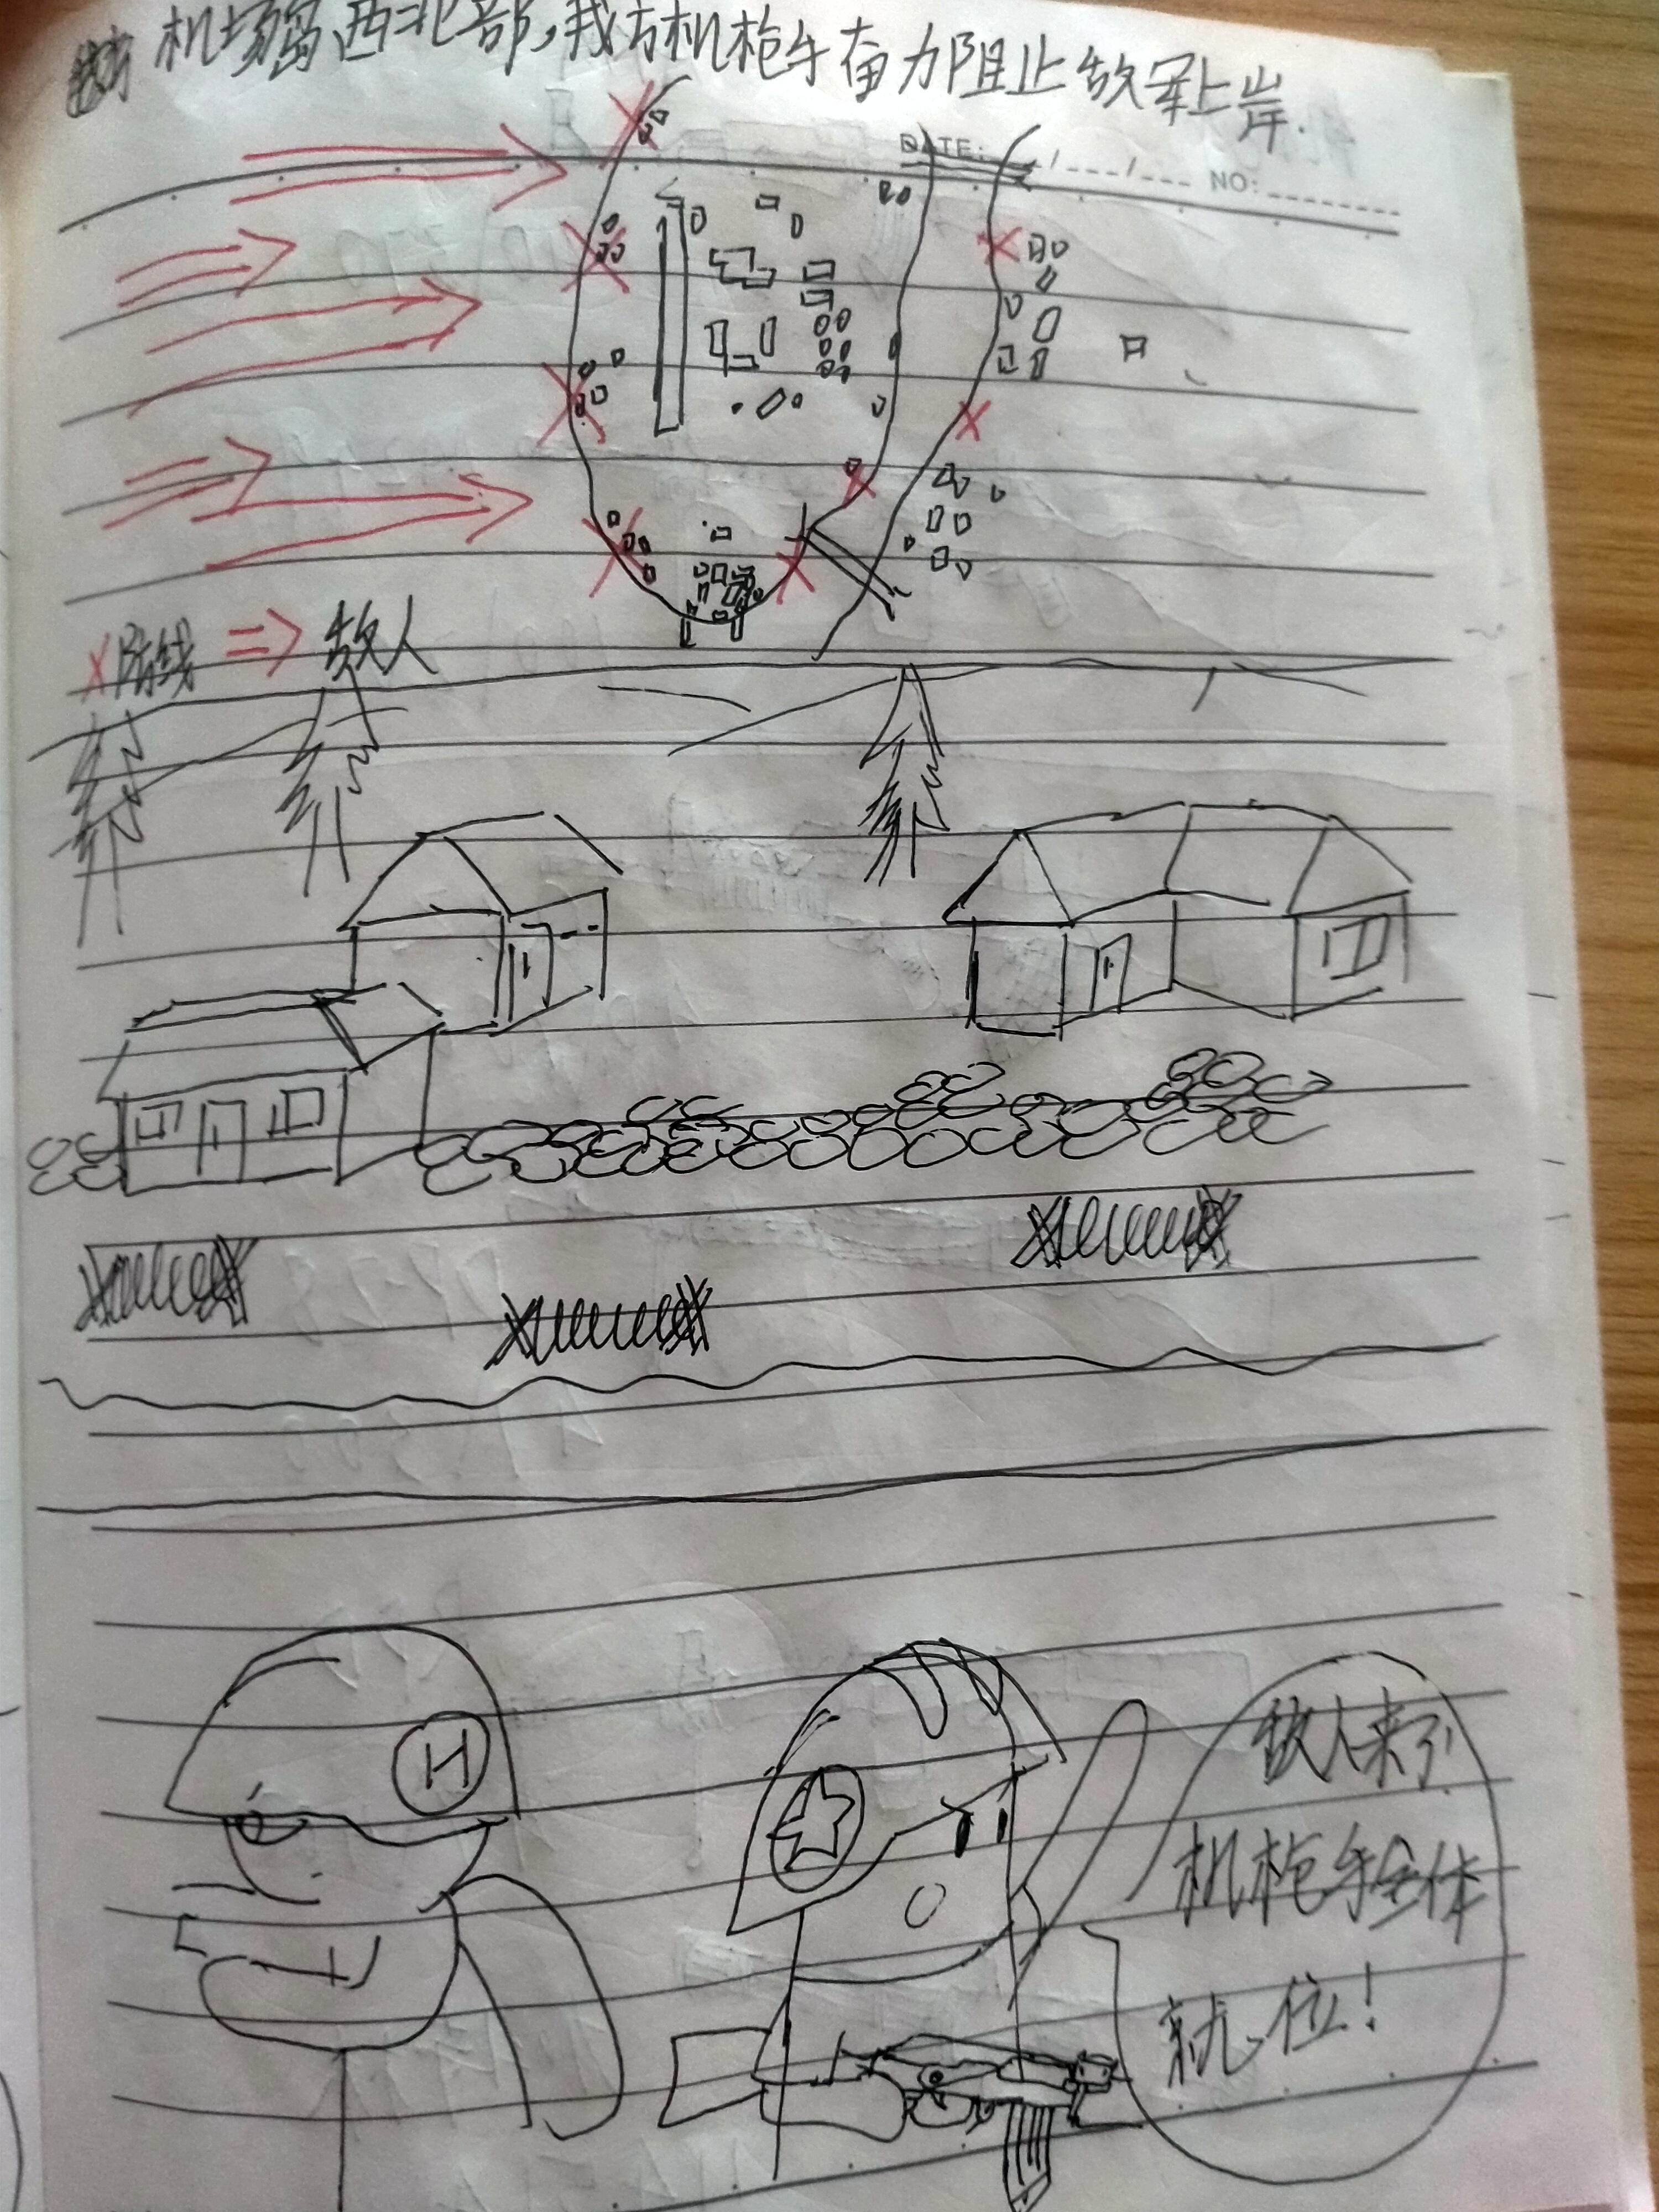 机场岛西北部，我方机枪手奋力阻止敌军上岸.
DATE: / / NO:
x防线 => 敌人
H
敌人来了
机枪手全体
就位！